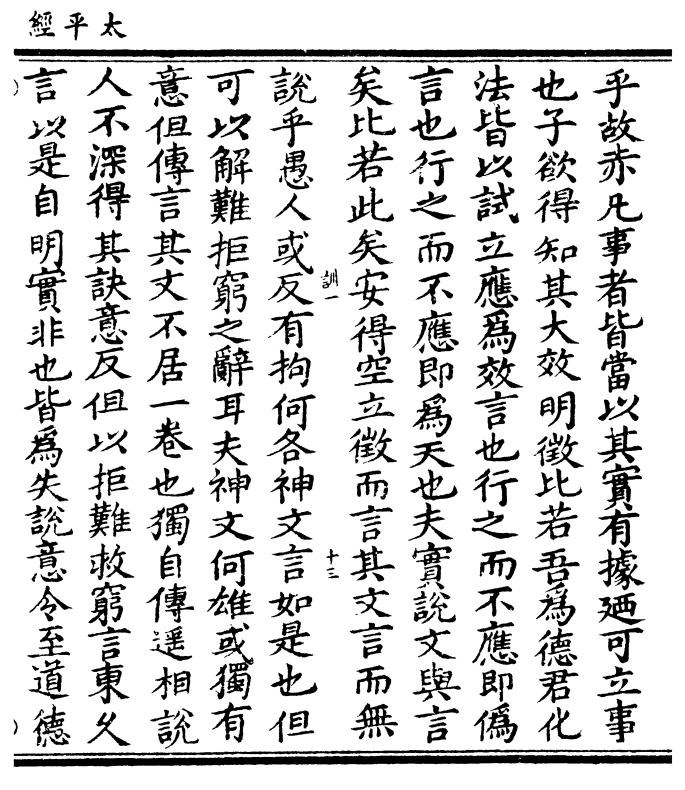 太平經
乎故赤凡事者皆當以其實有據廼可立事
也子欲得知其大效明徵比若吾爲德君化
法皆以試立應爲效言也行之而不應即僞
言也行之而不應即爲天也夫實說文與言
矣比若此矣安得空立徵而言其文言而無
訓一
十三
說乎愚人或反有拘何各神文言如是也但
可以解難拒窮之辭耳夫神文何雄或獨有
意但傳言其文不居一卷也獨自傳遥相說
人不深得其訣意反但以拒難救窮言東久
言以是自明實非也皆爲失說意令至道德